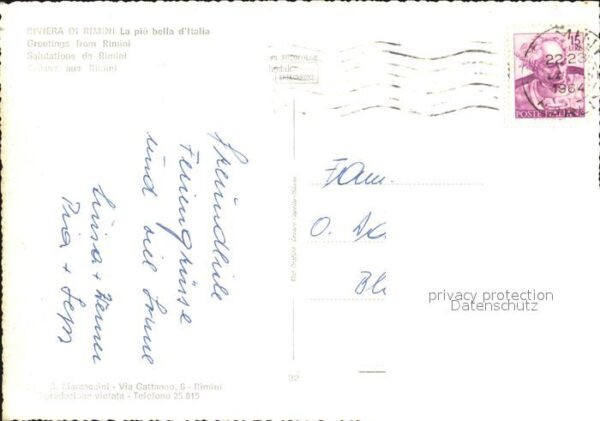 RIVIERA DI RIMINI La più bella d'Italia
Greetings from Rimini
Salutations de Rimini
aus Rimini
15
22-23
1964
POSTE
Freundliche
Feriengrüsse
und viel Sonne
Luisa + Werner
Pia + Sepp
Fam.
O.
privacy protection
Datenschutz
32
Marcaccini - Via Cattaneo, 6 - Rimini
Riproduzione vietata - Telefono 25.815